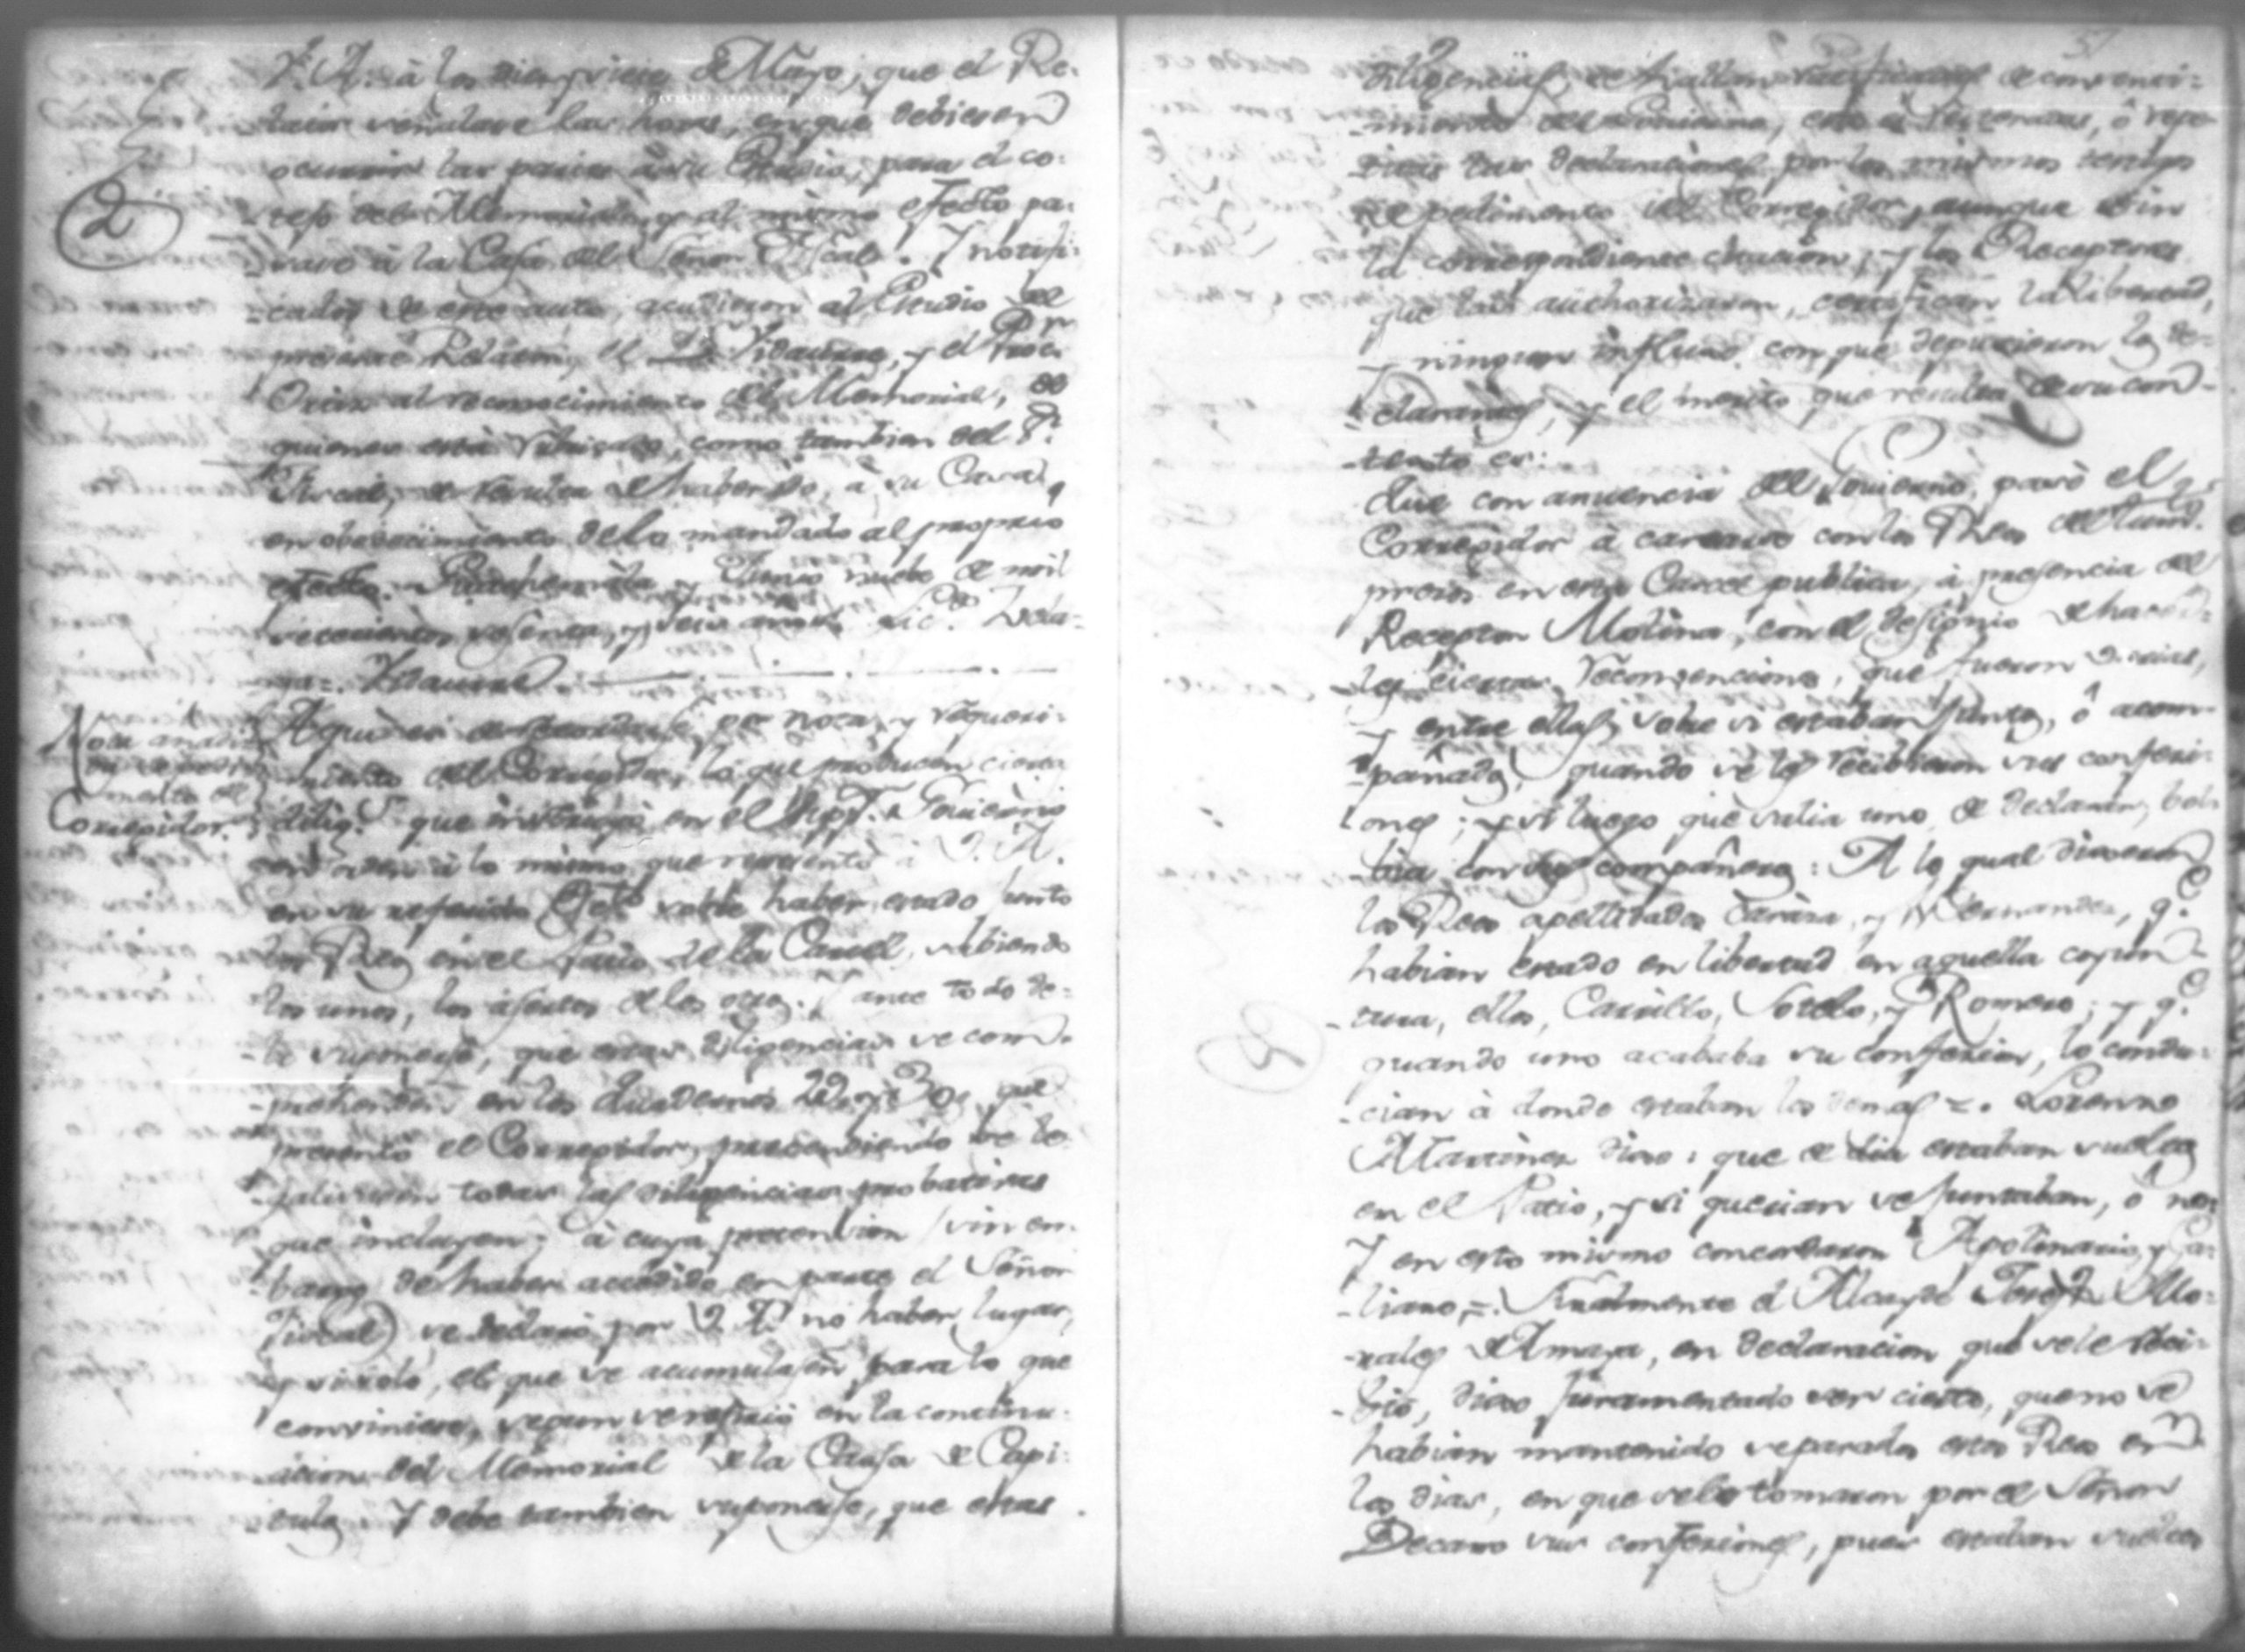 V. A. à los diez y siete de Mayo, que el Re-
lator señalase las horas, en que debieren
ocurrir las partes à su Estudio, para el co-
texo del Memorial, y al mismo efecto pa-
sase à la Casa del Señor Fiscal. Y notifi-
cados de este auto, acudieron al Estudio del
presente Relator, el Vidaurre, y el Proc.r
Ortiz al reconocimiento del Memorial, de
quienes està rubricado, como tambien del S.r
Fiscal, de resulta de haber ido, à su Casa,
en obedecimiento de lo mandado al proprio
efecto. Guathemala y Junio nuebe de mil
setecientos sesenta, y seis años. Lic.do
Vidaurre
2
Nota
pedi-
mento del
Corregidor.
Aqui es de por nota, y requeri-
miento del Corregidor, lo que producen ciertas
dilig.s que instruyò en el Sup.r Govierno
à lo mismo que representò à V. A.
en su referido sobre haber estado juntos
los Reos en el Patio de la Carcel, sabiendo
los unos, los asertos de los otros. Y ante todo de-
be suponerse, que estas diligencias se com-
prehenden en los Quadernos 2.. y 3.. que
presentò el Corregidor, pretendiendo se le
todas las diligencias probatorias
que incluyen; à cuya pretencion (sin em-
bargo de haber accedido en parte el Señor
Fiscal) se declarò por V. A. no haber lugar,
y si solo, el que se acumulasen para lo que
conviniese, segun se refiriò en la continu-
acion del Memorial de la Causa de Capi-
tulos. Y debe tambien suponerse, que estas
51
diligencias, se hallan de conoci-
miento del contrario, esto es
sus declaraciones por los mismos testigos
de pedimento del Corregidor, aunque sin
la correspondiente citacion; y los Receptores
que las authorizaron, certifican la libertad,
y ningun influxo con que depusieron los de-
clarantes, y el merito que resulta de su con-
texto es:
Que con anuencia del Govierno, pasò el
Corregidor à carearse con los Reos
presos en esta Carcel publica, à presencia del
Receptor Molina, con el designio de hacer-
les ciertas reconvenciones, que fueron varias,
y entre ellas, sobre si estaban juntos, ò acom-
pañados, quando se les recibieron sus confesi-
ones; y si luego que salia uno de declarar, bol-
bia con sus compañeros: A lo qual dixeron
los Reos apellidados y Hernandez, q.e
habian estado en libertad en aquella coyun-
tura, ellos, Carrillo, Sotelo, y Romero; y q.e
quando uno acababa su confesion, lo condu-
cian à donde estaban los demas =. Lorenzo
Martinez dixo: que de dia estaban sueltos
en el Patio, y si querian se juntaban, ò no:
Y en esto mismo concordaron Apolinario, y Ga-
liano =. Finalmente el Alcayde Josef Mo-
rales de Amaya, en declaracion que se le reci-
biò, dixo juramentado ser cierto, que no se
habian mantenido separados estos Reos en
los dias, en que se les tomaron por el Señor
Decano sus confesiones, pues estaban sueltos